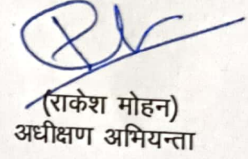 (राकेश मोहन)
अधीक्षण अभियन्ता